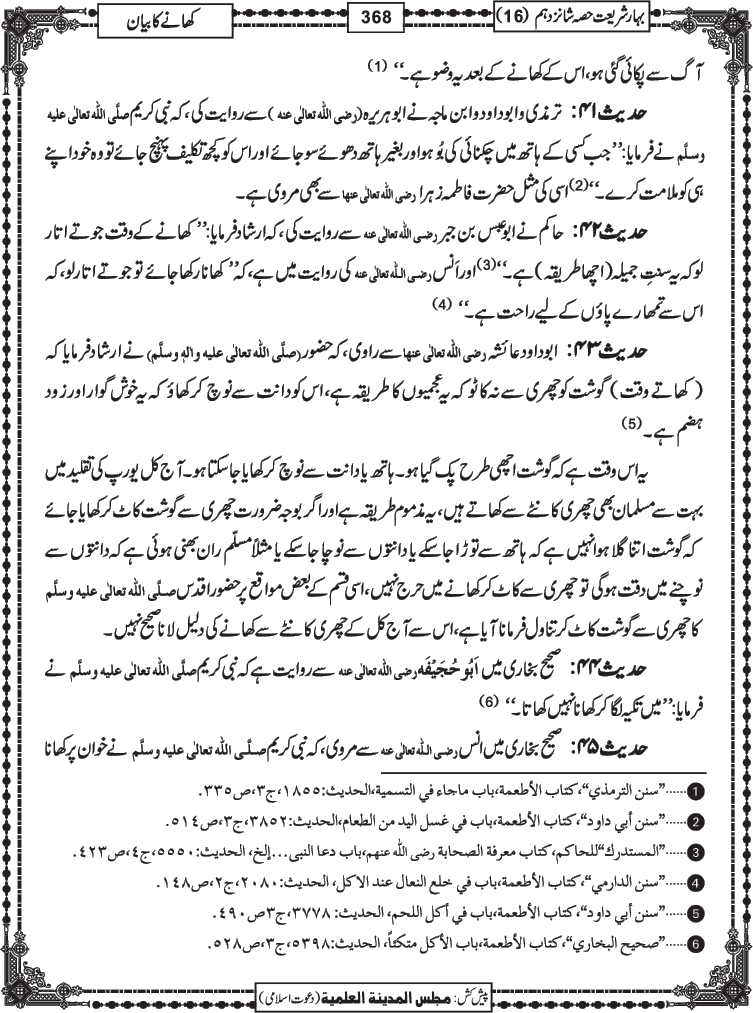 بہار شریعت حصہ شانزدہم (16)
368
کھانے کا بیان
آگ سے پکائی گئی ہو، اس کے کھانے کے بعد یہ وضو ہے۔‘‘ (1)
حدیث ۴۱: ترمذی و ابو داود و ابن ماجہ نے ابوہریرہ (رضی اللہ تعالٰی عنہ) سے روایت کی، کہ نبی کریم صلَّی اللہ تعالٰی علیہ
وسلَّم نے فرمایا: ’’جب کسی کے ہاتھ میں چکنائی کی بُو ہو اور بغیر ہاتھ دھوئے سو جائے اور اس کو کچھ تکلیف پہنچ جائے تو وہ خود اپنے
ہی کو ملامت کرے۔‘‘(2) اسی کی مثل حضرت فاطمہ زہرا رضی اللہ تعالٰی عنہا سے بھی مروی ہے۔
حدیث ۴۲: حاکم نے ابو عبس بن جبر رضی اللہ تعالٰی عنہ سے روایت کی، کہ ارشاد فرمایا: ’’کھانے کے وقت جوتے اتار
لو کہ یہ سنتِ جمیلہ (اچھا طریقہ) ہے۔‘‘(3) اور اَنس رضی اللہ تعالٰی عنہ کی روایت میں ہے، کہ ’’کھانا رکھا جائے تو جوتے اتار لو، کہ
اس سے تمھارے پاؤں کے لیے راحت ہے۔‘‘ (4)
حدیث ۴۳: ابو داود عائشہ رضی اللہ تعالٰی عنہا سے راوی، کہ حضور (صلَّی اللہ تعالٰی علیہ واٰلہٖ وسلَّم) نے ارشاد فرمایا کہ
(کھاتے وقت) گوشت کو چھری سے نہ کاٹو کہ یہ عجمیوں کا طریقہ ہے، اس کو دانت سے نوچ کر کھاؤ کہ یہ خوش گوار اور زود
ہضم ہے۔ (5)
یہ اس وقت ہے کہ گوشت اچھی طرح پک گیا ہو۔ ہاتھ یا دانت سے نوچ کر کھایا جاسکتا ہو۔ آج کل یورپ کی تقلید میں
بہت سے مسلمان بھی چھری کانٹے سے کھاتے ہیں، یہ مذموم طریقہ ہے اور اگر بوجہ ضرورت چھری سے گوشت کاٹ کر کھایا جائے
کہ گوشت اتنا گلا ہوا نہیں ہے کہ ہاتھ سے توڑا جاسکے یا دانتوں سے نوچا جاسکے یا مثلاً مسلّم ران بھنی ہوئی ہے کہ دانتوں سے
نوچنے میں دقت ہوگی تو چھری سے کاٹ کر کھانے میں حرج نہیں، اسی قسم کے بعض مواقع پر حضور اقدس صلَّی اللہ تعالٰی علیہ وسلَّم
کا چھری سے گوشت کاٹ کر تناول فرمانا آیا ہے، اس سے آج کل کے چھری کانٹے سے کھانے کی دلیل لانا صحیح نہیں۔
حدیث ۴۴: صحیح بخاری میں اَبُو حُجَیْفَہ رضی اللہ تعالٰی عنہ سے روایت ہے کہ نبی کریم صلَّی اللہ تعالٰی علیہ وسلَّم نے
فرمایا: ’’میں تکیہ لگا کر کھانا نہیں کھاتا۔‘‘ (6)
حدیث ۴۵: صحیح بخاری میں انس رضی اللہ تعالٰی عنہ سے مروی، کہ نبی کریم صلَّی اللہ تعالٰی علیہ وسلَّم نے خوان پر کھانا
1 ......”سنن الترمذي“، کتاب الأطعمة، باب ماجاء في التسمية، الحديث: ١٨٥٥، ج٣، ص٣٣٥.
2 ......”سنن أبي داود“، کتاب الأطعمة، باب في غسل اليد من الطعام، الحديث: ٣٨٥٢، ج٣، ص٥١٤.
3 ......”المستدرك“ للحاكم، كتاب معرفة الصحابة رضی اللہ عنهم، باب دعا النبی...إلخ، الحديث: ٥٥٥٠، ج٤، ص٤٢٣.
4 ......”سنن الدارمي“، کتاب الأطعمة، باب في خلع النعال عند الاكل، الحديث: ٢٠٨٠، ج٢، ص١٤٨.
5 ......”سنن أبي داود“، کتاب الأطعمة، باب في أكل اللحم، الحديث: ٣٧٧٨، ج٣ص٤٩٠.
6 ......”صحيح البخاري“، کتاب الأطعمة، باب الأكل متكئاً، الحديث: ٥٣٩٨، ج٣، ص٥٢٨.
پیش کش: مجلس المدینۃ العلمیۃ (دعوت اسلامی)